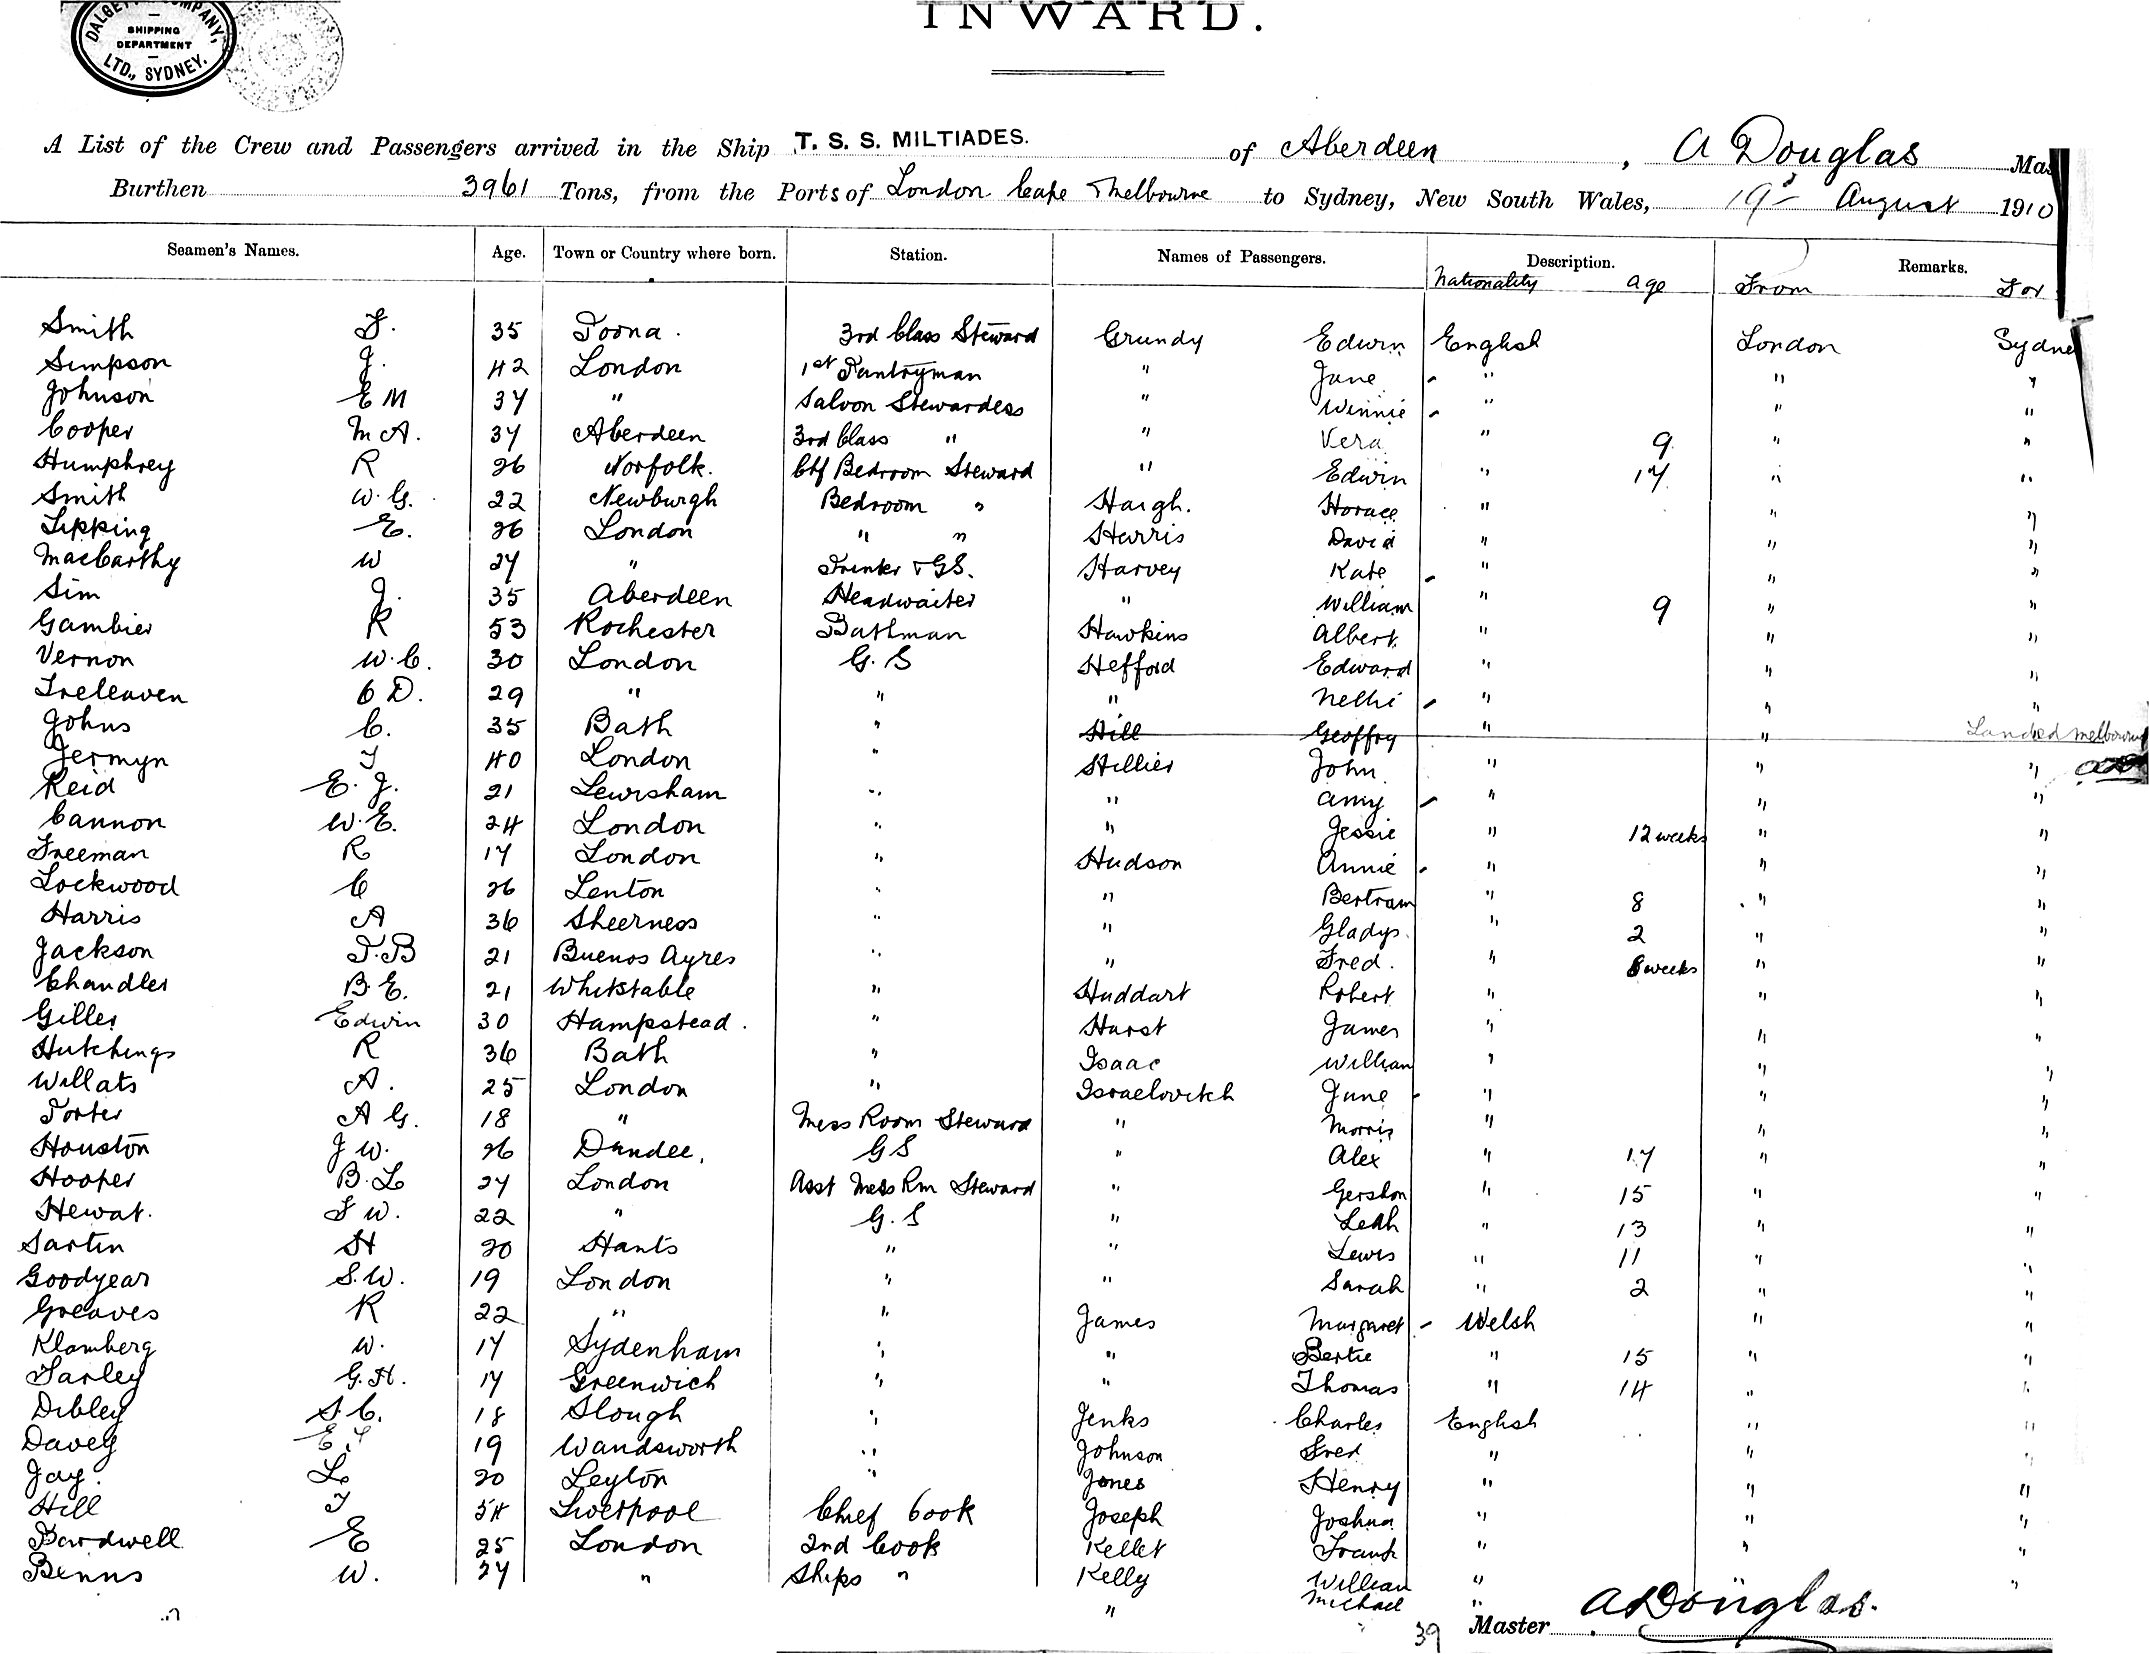 DALGETY & COMPANY,
SHIPPING
DEPARTMENT
LTD., SYDNEY.
INWARD.
A List of the Crew and Passengers arrived in the Ship T. S. S. MILTIADES. of Aberdeen, A Douglas Mas
Burthen 3961 Tons, from the Ports of London Cape Melbourne to Sydney, New South Wales, 19 August 1910
Seamen's Names. Age. Town or Country where born. Station. Names of Passengers. Description. Remarks.
Nationality age From For
Smith F. 35 Poona. 3rd Class Steward Grundy Edwin English London Sydne
Simpson J. 42 London 1st Pantryman " Jane " " "
Johnson E M 37 " Saloon Stewardess " Winnie " " "
Cooper M A. 37 Aberdeen 3rd Class " " Vera " 9 " "
Humphrey R 26 Norfolk. Bedroom Steward " Edwin " 17 " "
Smith W. G. 22 Newburgh Bedroom " Haigh. Horace " " "
Tipping E. 26 London " " Harris David " " "
MacCarthy W 27 " Printer & GS. Harvey Kate " " "
Sim J. 35 Aberdeen Headwaiter " William " 9 " "
Gambier R 53 Rochester Bathman Hawkins Albert " " "
Vernon W. C. 30 London G. S Hefford Edward " " "
Treleaven C D. 29 " " " Nellie " " "
Johns C. 35 Bath " Hill Geoffry " " Landed Melbourne
Jermyn T 40 London " Hillier John " " "
Reid E. J. 21 Lewisham " " Amy " " "
Cannon W. E. 24 London " " Jessie " 12 weeks " "
Freeman R 17 London " Hudson Annie " " "
Lockwood C 26 Lenton " " Bertram " 8 " "
Harris A 36 Sheerness " " Gladys " 2 " "
Jackson F. B 21 Buenos Ayres " " Fred. " 8 weeks " "
Chandler B. E. 21 Whitstable " Huddart Robert " " "
Giller Edwin 30 Hampstead. " Hurst James " " "
Hutchings R 36 Bath " Isaac William " " "
Willats A. 25 London " Israelovitch Jane " " "
Porter A G. 18 " Mess Room Steward " Morris " " "
Houston J W. 26 Dundee. G S " Alex " 17 " "
Hooper B. L 27 London Asst Mess Rm Steward " Gershon " 15 " "
Hewat. F W. 22 " G. S " Leah " 13 " "
Sartin H 20 Hants " " Lewis " 11 " "
Goodyear S. W. 19 London " " Sarah " 2 " "
Greaves R 22 " " James Margaret Welsh " "
Klamberg W. 17 Sydenham " " Bertie " 15 " "
Farley G. H. 17 Greenwich " " Thomas " 14 " "
Dibley S. C. 18 Slough " Jenks Charles English " "
Davey E. 19 Wandsworth " Johnson Fred " " "
Jay. L 20 Leyton " Jones Henry " " "
Hill T 54 Liverpool Chief Cook Joseph Joshua " " "
Bardwell E 25 London 2nd Cook Kellet Frank " " "
Benns W. 27 " Ships " Kelly William " " "
" Michael "
39 Master A Douglas.